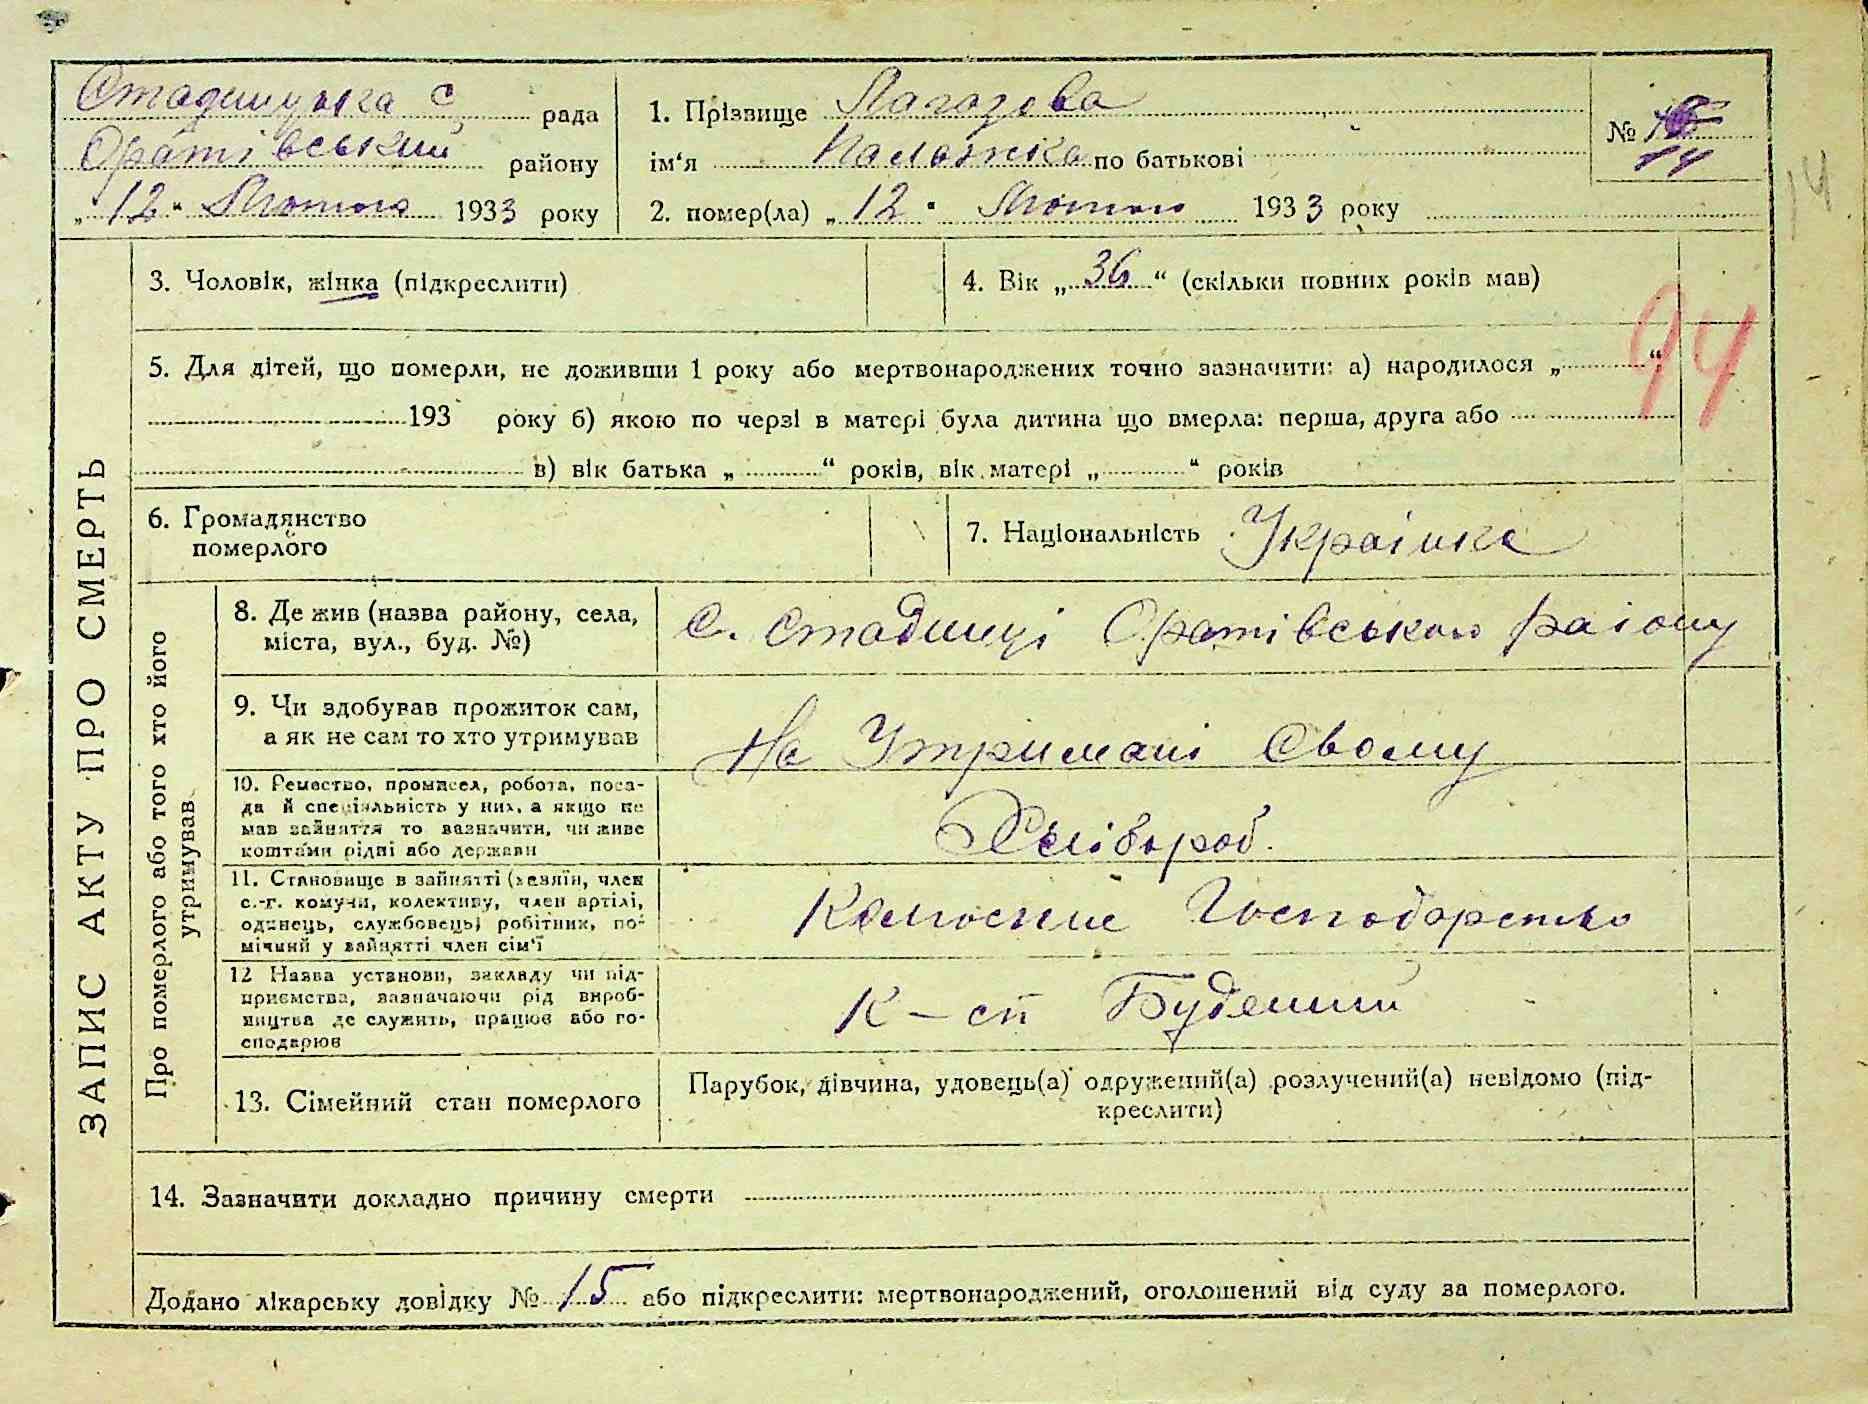 Стадницька с рада
Оратівський району
„ 12 " Лютого 1933 року
1. Прізвище Лагодова
ім'я Палажка по батькові
2. помер(ла) „ 12 " Лютого 1933 року
№ 14
14
3. Чоловік, жінка (підкреслити)
4. Вік „ 36 “ (скільки повних років мав)
94
5. Для дітей, що померли, не доживши 1 року або мертвонароджених точно зазначити: а) народилося „ “
193 року б) якою по черзі в матері була дитина що вмерла: перша, друга або
в) вік батька „ “ років, вік матері „ “ років
6. Громадянство
померлого
7. Національність Українка
ЗАПИС АКТУ ПРО СМЕРТЬ
Про померлого або того хто його
утримував
8. Де жив (назва району, села,
міста, вул., буд. №)
с. Стадниці Оратівського району
9. Чи здобував прожиток сам,
а як не сам то хто утримував
На Утримані Свому
10. Ремество, промисел, робота, поса-
да й спеціяльність у них, а якщо не
мав зайняття то вазначити, чи живе
коштами рідні або держави
Хлібороб.
11. Становище в зайнятті (хазяїн, член
с.-г. комуни, колективу, член артілі,
одинець, службовець, робітник, по-
мічний у зайнятті член сім'ї
Колгоспне Господарство
12 Назва установи, закладу чи під-
приємства, вазначаючи рід вироб-
ництва де служить, працює або го-
сподарює
К-сп Будений
13. Сімейний стан померлого
Парубок, дівчина, удовець(а) одружений(а) розлучений(а) невідомо (під-
креслити)
14. Зазначити докладно причину смерти
Додано лікарську довідку № 15 або підкреслити: мертвонароджений, оголошений від суду за померлого.